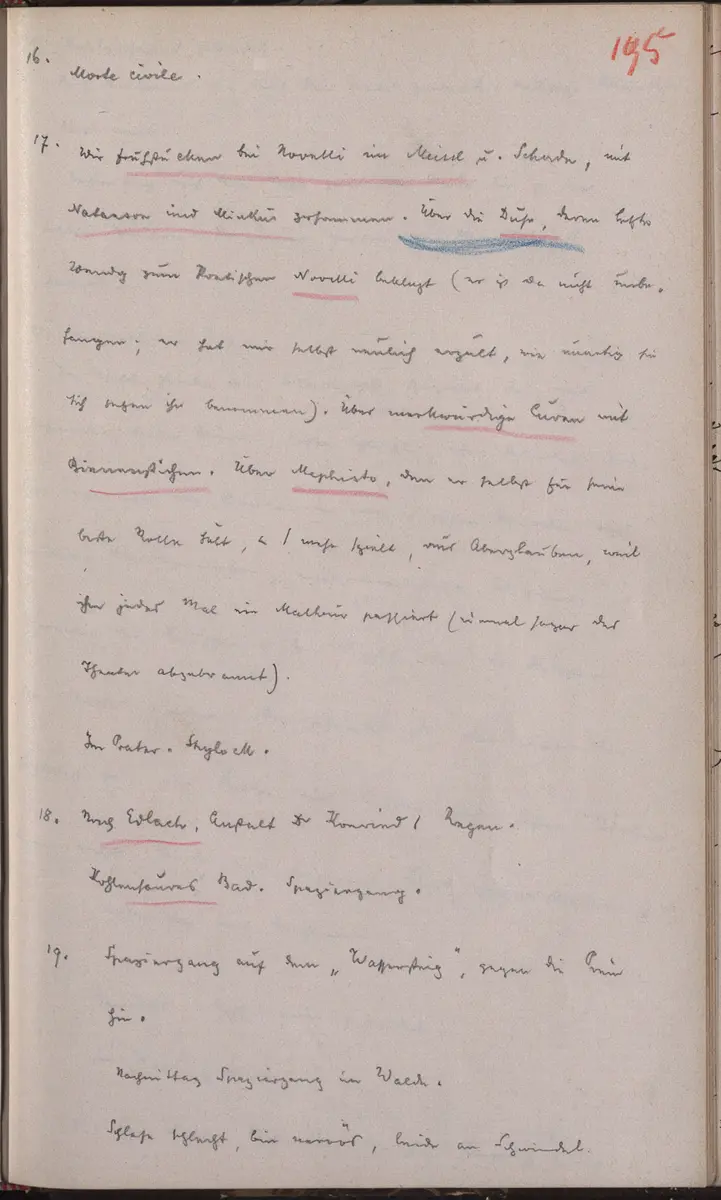 195
16. Morte civile.
17. Wir frühstücken bei Novelli im Meissl u. Schadn, mit
Natanson und Minkus zusammen. Über die Duse, deren letzte
Wendg zum Poetischen Novelli beklagt (er ist da nicht unbe-
fangen; er hat mir selbst neulich erzält, wie unartig sie
sich gegen ihn benommen). Über merkwürdige Curen mit
Bienenstichen. Über Mephisto, den er selbst für seine
beste Rolle hält, mehr spielt, aus Aberglauben, weil
ihm jedes Mal ein Malheur passiert (einmal sogar das
Theater abgebrannt).
Im Prater. Shylock.
18. Nach Edlach, Anstalt Dr Konried / Regen.
Kohlensaures Bad. Spaziergang.
19. Spaziergang auf dem „Wassersteig", gegen die Prein
hin.
Nachmittag Spaziergang im Walde.
Schlafe schlecht, bin nervös, leide an Schwindel.